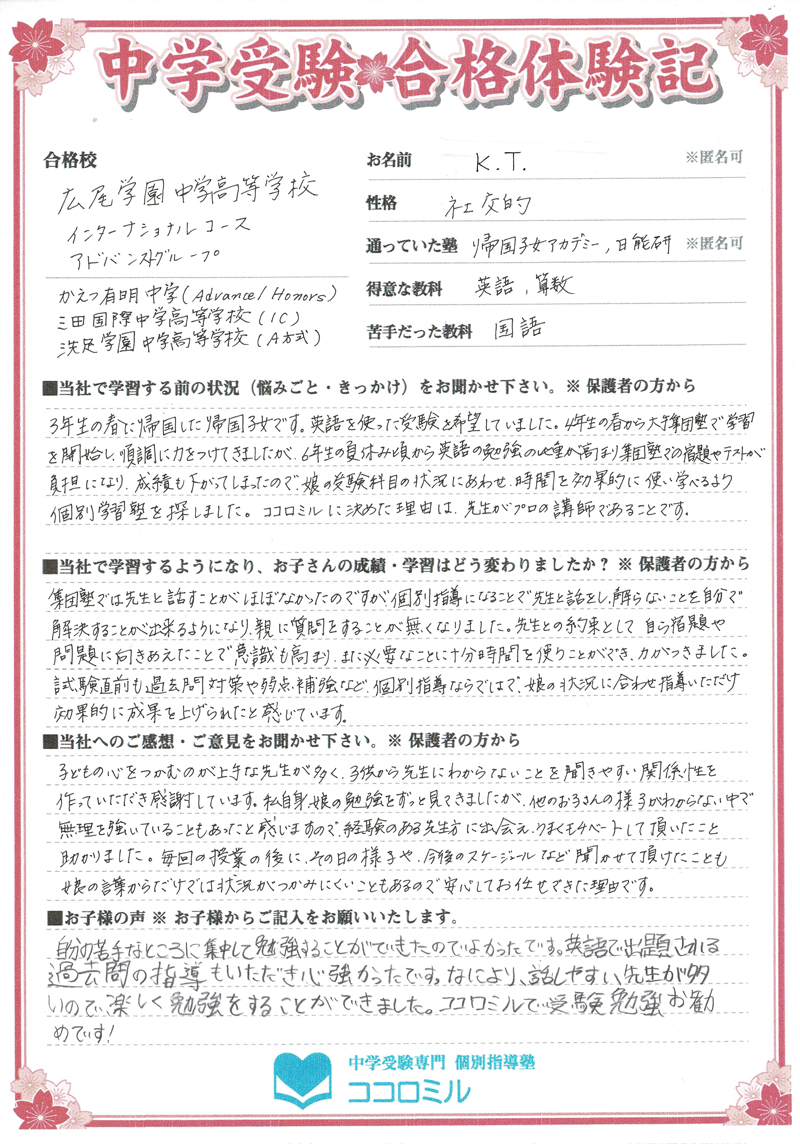 中学受験 合格体験記
合格校
広尾学園中学高等学校
インターナショナルコース
アドバンストグループ
かえつ有明中学(Advance/Honors)
三田国際中学高等学校(IC)
洗足学園中学高等学校(A方式)
お名前 K.T. ※匿名可
性格 社交的
通っていた塾 帰国子女アカデミー,日能研 ※匿名可
得意な教科 英語,算数
苦手だった教科 国語
■当社で学習する前の状況（悩みごと・きっかけ）をお聞かせ下さい。※ 保護者の方から
3年生の春に帰国した帰国子女です。英語を使った受験を希望していました。4年生の春から大手集団塾で学習
を開始し、順調に力をつけてきましたが、6年生の夏休み頃から英語の勉強の比重が高まり集団塾での宿題やテストが
負担になり、成績も下がってしまったので、娘の受験科目の状況にあわせ、時間を効果的に使い学べるよう
個別学習塾を探しました。ココロミルに決めた理由は、先生がプロの講師であることです。
■当社で学習するようになり、お子さんの成績・学習はどう変わりましたか？ ※ 保護者の方から
集団塾では先生と話すことがほぼなかったのですが、個別指導になることで先生と話をし、解らないことを自分で
解決することが出来るようになり、親に質問をすることが無くなりました。先生との約束として自ら宿題や
問題に向きあえたことで意識も高まり、また必要なことに十分時間を使うことができ、力がつきました。
試験直前も過去問対策や弱点補強など、個別指導ならではで、娘の状況に合わせ指導いただけ
効果的に成果を上げられたと感じています。
■当社へのご感想・ご意見をお聞かせ下さい。※ 保護者の方から
子どもの心をつかむのが上手な先生が多く、子供から先生にわからないことを聞きやすい関係性を
作っていただき感謝しています。私自身、娘の勉強をずっと見てきましたが、他のお子さんの様子がわからない中で
無理を強いていることもあったと感じますので、経験のある先生方に出会え、うまくモチベートして頂いたこと
助かりました。毎回の授業の後に、その日の様子や、今後のスケジュールなど聞かせて頂けたことも
娘の言葉からだけでは状況がつかみにくいこともあるので安心してお任せできた理由です。
■お子様の声 ※ お子様からご記入をお願いいたします。
自分の苦手なところに集中して勉強することができたのでよかったです。英語で出題される
過去問の指導もいただき心強かったです。なにより、話しやすい先生が多
いので、楽しく勉強をすることができました。ココロミルで受験勉強お勧
めです!
中学受験専門 個別指導塾
ココロミル